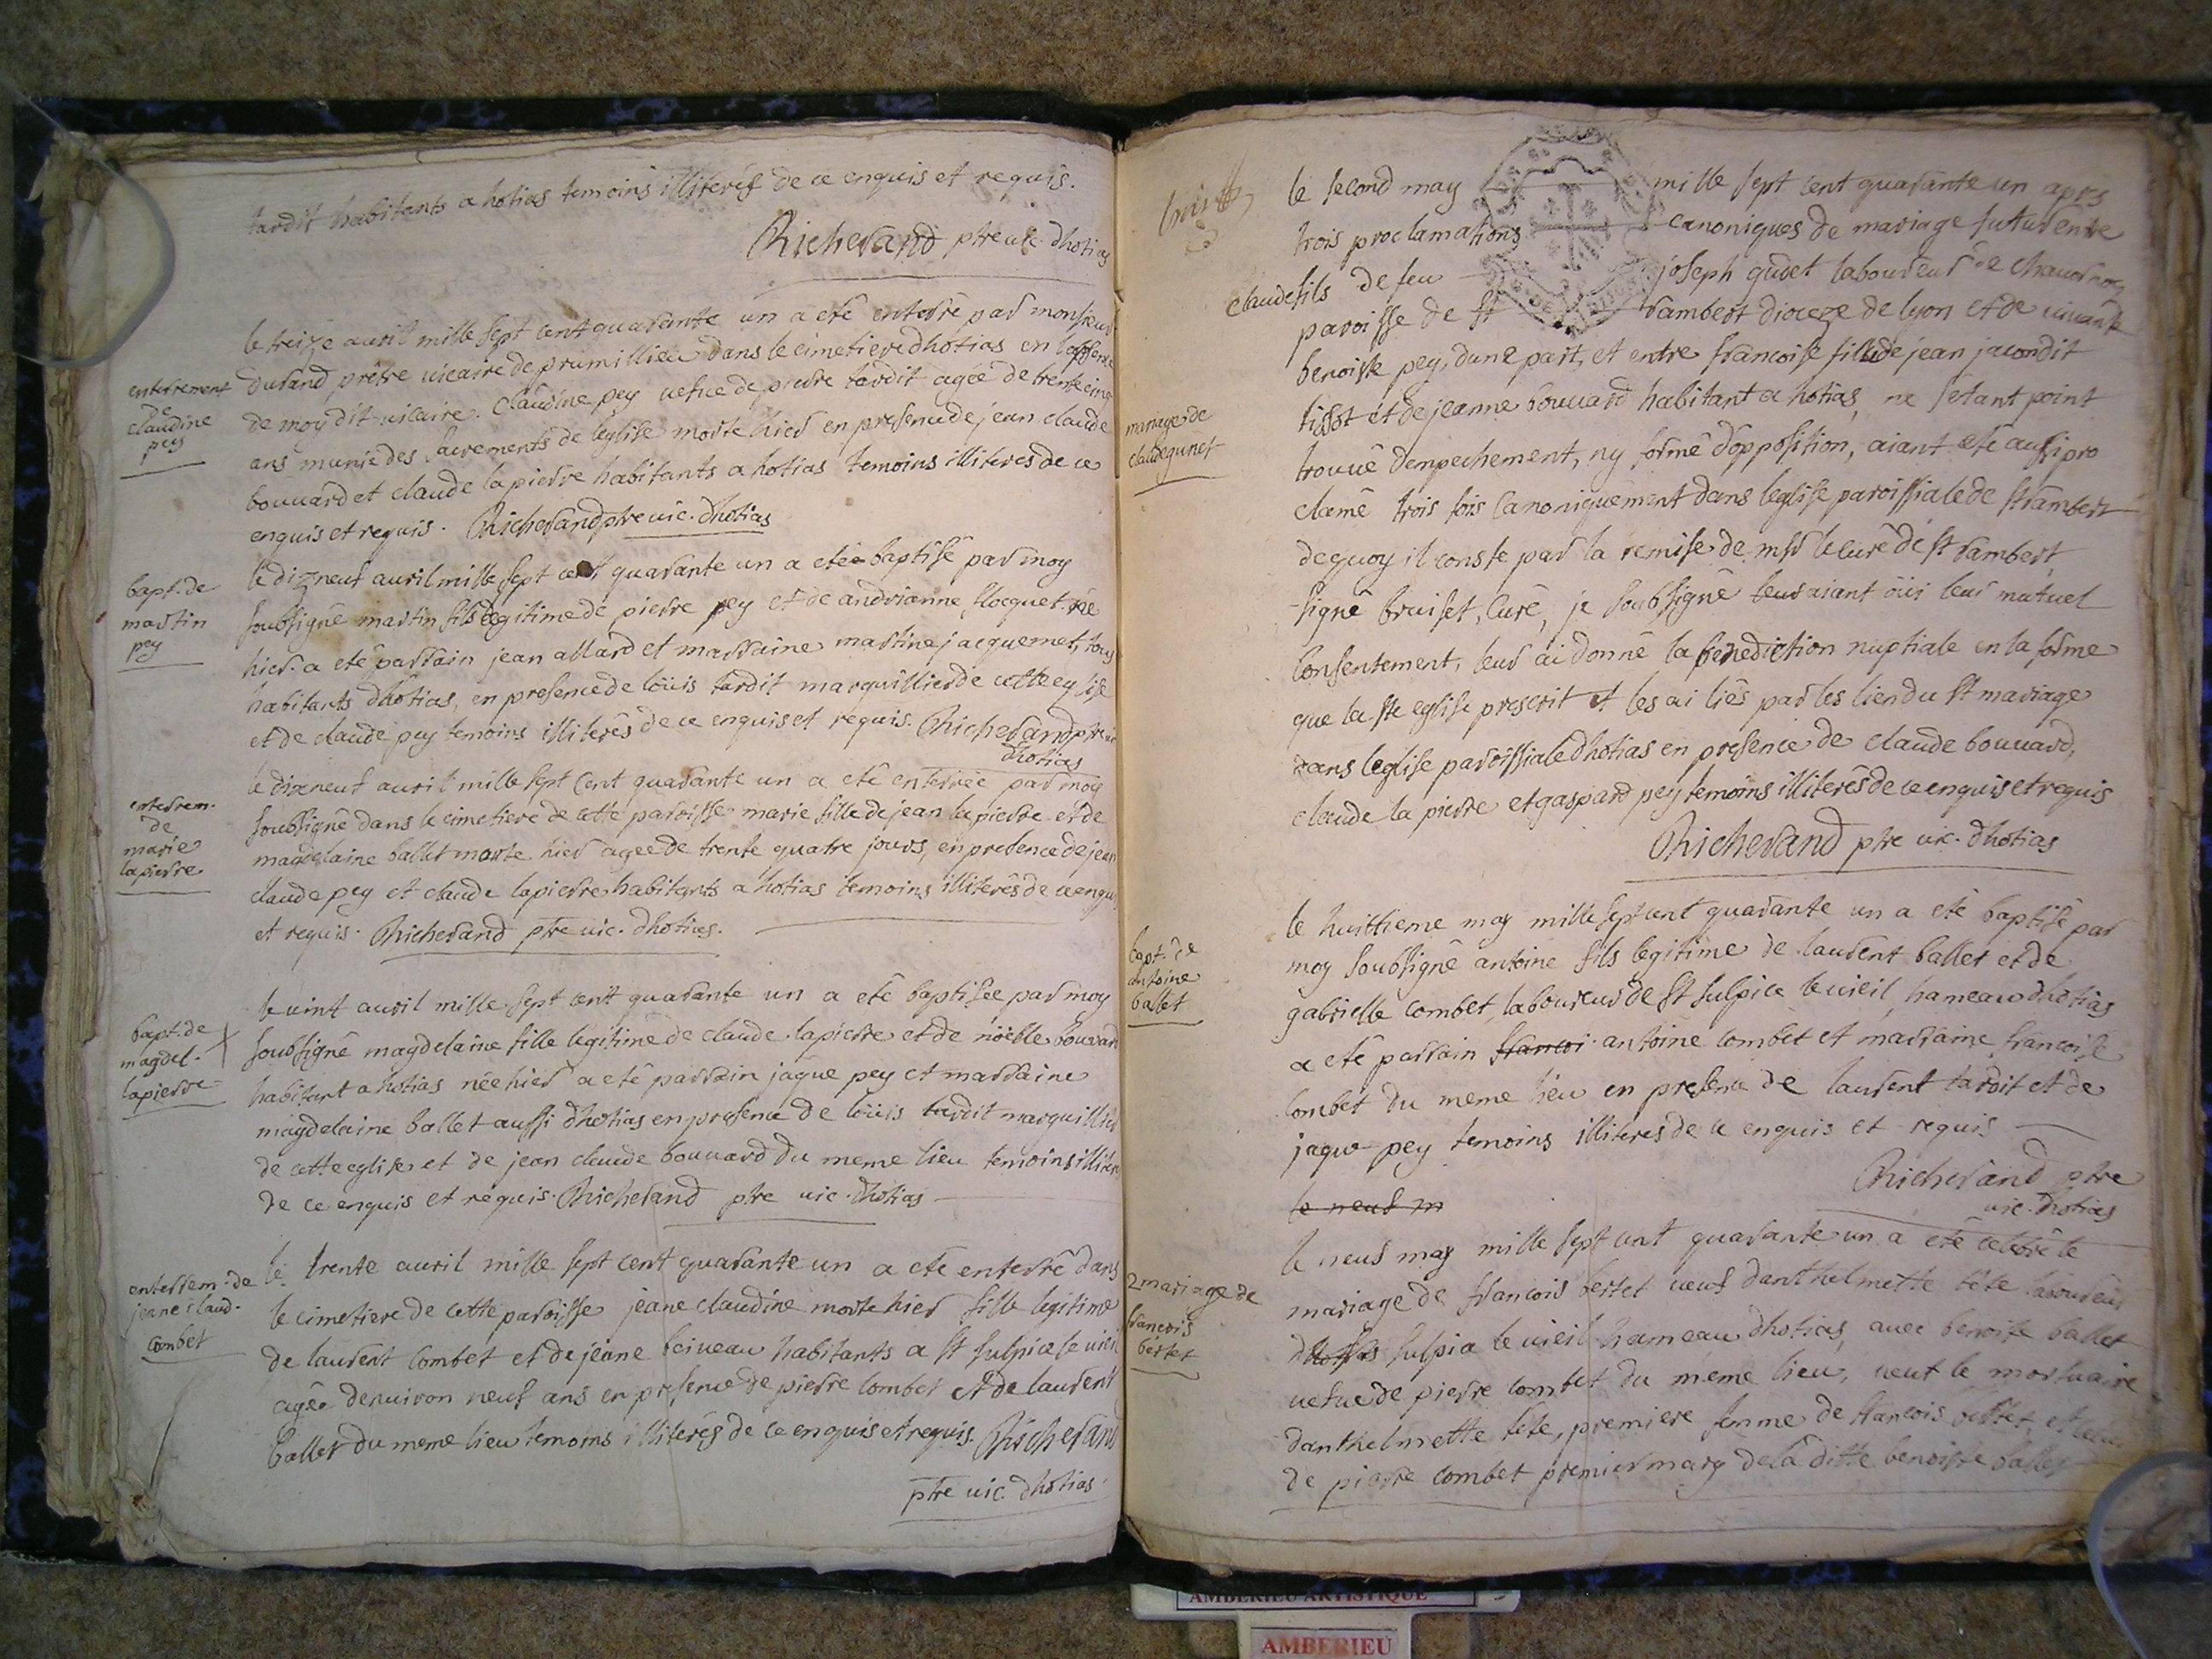 tardit habitants a hotias temoins illiterés de ce enquis et requis.
Richerand ptre vic. dhotias
enterrement
de
claudine
pey
le treize avril mille sept cent quarante un a eté enterré par monsieur
durand prêtre vicaire de prumillieu dans le cimetiere dhotias en labsence
de moy dit vicaire. Claudine pey vefue de pierre tardit agée de trente cinq
ans munie des sacrements de leglise morte hier en presence de jean claude
bouvard et claude lapierre habitants a hotias temoins illiteres de ce
enquis et requis. Richerand ptre vic. dhotias
bapt. de
martin
pey
le dizneuf avril mille sept cent quarante un a eté baptisé par moy
soubsigné martin fils legitime de pierre pey et de andrianne flocquet né
hier. a eté parrain jean allard et marraine martine jacquemet, tous
habitants dhotias, en presence de loüis tardit marquillier de cette eglise
et de claude pey temoins illiterés de ce enquis et requis. Richerand ptre vic
dhotias
enterrem.
de
marie
lapierre
le dizneuf avril mille sept cent quarante un a eté enterrée par moy
soubsigné dans le cimetiere de cette paroisse marie fille de jean lapierre et de
magdelaine ballet morte hier agée de trente quatre jours, en presence de jean
claude pey et claude lapierre habitants a hotias temoins illiterés de ce enquis
et requis. Richerand ptre vic. dhotias.
bapt. de
magdel.
lapierre
le vint avril mille sept cent quarante un a eté baptisée par moy
soubsigné magdelaine fille legitime de claude lapierre et de noëble bouvard
habitant a hotias née hier a eté parrain jaque pey et marraine
magdelaine ballet aussi dhotias en presence de loüis tardit marquillier
de cette eglise et de jean claude bouvard du meme lieu temoins illiteres
de ce enquis et requis. Richerand ptre vic. dhotias
enterrem. de
jeane claud.
combet
le trente avril mille sept cent quarante un a eté enterré dans
le cimetiere de cette paroisse jeane claudine morte hier fille legitime
de laurent combet et de jeane beiveau habitants a st sulpice le vieil
agée denviron neuf ans en presence de pierre combet et de laurent
ballet du meme lieu temoins illiterés de ce enquis et requis. Richerand
ptre vic. dhotias.
mariage de
claude guvet
le second may mille sept cent quarante un apres
trois proclamations canoniques de mariage futur entre
claude fils de feu joseph guvet laboureur de
paroisse de st rambert dioceze de lyon et de vivante
benoiste pey, dune part, et entre francoise fille de jean jacondit
tissot et de jeanne bouvard habitant a hotias, ne setant point
trouvé dempechement, ny formé dopposition, aiant eté aussi pro
clamé trois fois canoniquement dans leglise paroissiale de st rambert
de quoy il conste par la remise de msr le curé de st rambert
signé bruiset, curé, je soubsigné leur aiant oüi leur mutuel
consentement, leur ai donné la benediction nuptiale en la forme
que la ste eglise prescrit et les ai liés par les lien du st mariage
dans leglise paroissiale dhotias en presence de claude bouvard,
claude lapierre et gaspard pey temoins illiterés de ce enquis et requis
Richerand ptre vic. dhotias
bapt. de
antoine
ballet
le huittieme may mille sept cent quarante un a eté baptisé par
moy soubsigné antoine fils legitime de laurent ballet et de
gabrielle combet, laboureur de st sulpice le vieil, hameau dhotias
a eté parrain francoi antoine combet et marraine francoise
combet du meme lieu en presence de laurent tardit et de
jaque pey temoins illiteres de ce enquis et requis
Richerand ptre
vic. dhotias
le neuf m
2 mariage de
francois
bertet
le neuf may mille sept cent quarante un a eté celebré le
mariage de francois bertet veuf danthelmette tête laboureur
sulpice le vieil hameau dhotias, avec benoite ballet
vefue de pierre combet du meme lieu, veut le mortuaire
danthelmette tête, premiere femme de francois bertet, et celui
de pierre combet premier mary de la ditte benoiste ballet
AMBERIEU ARTISTIQUE
AMBERIEU